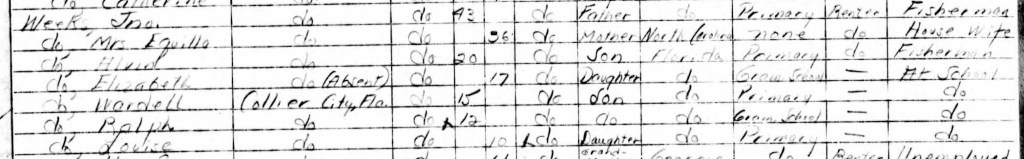 do, Catherine
Weeks, Jno. do do 43 do Father do Primary Renter Fisherman
do, Mrs. Equilla do do 36 do Mother North Carolina none do House Wife
do, do do 20 do Son Florida Primary do Fisherman
do, Elizabeth do (Absent) do 17 do Daughter do Gram School — At School
do, Wardell Collier City, Fla do 15 do Son do Primary — do
do, Ralph do do 12 do do do Gram School — do
do, Louise do do 10 do Daughter do Primary — do
Grand- Georgia do Renter Unemployed